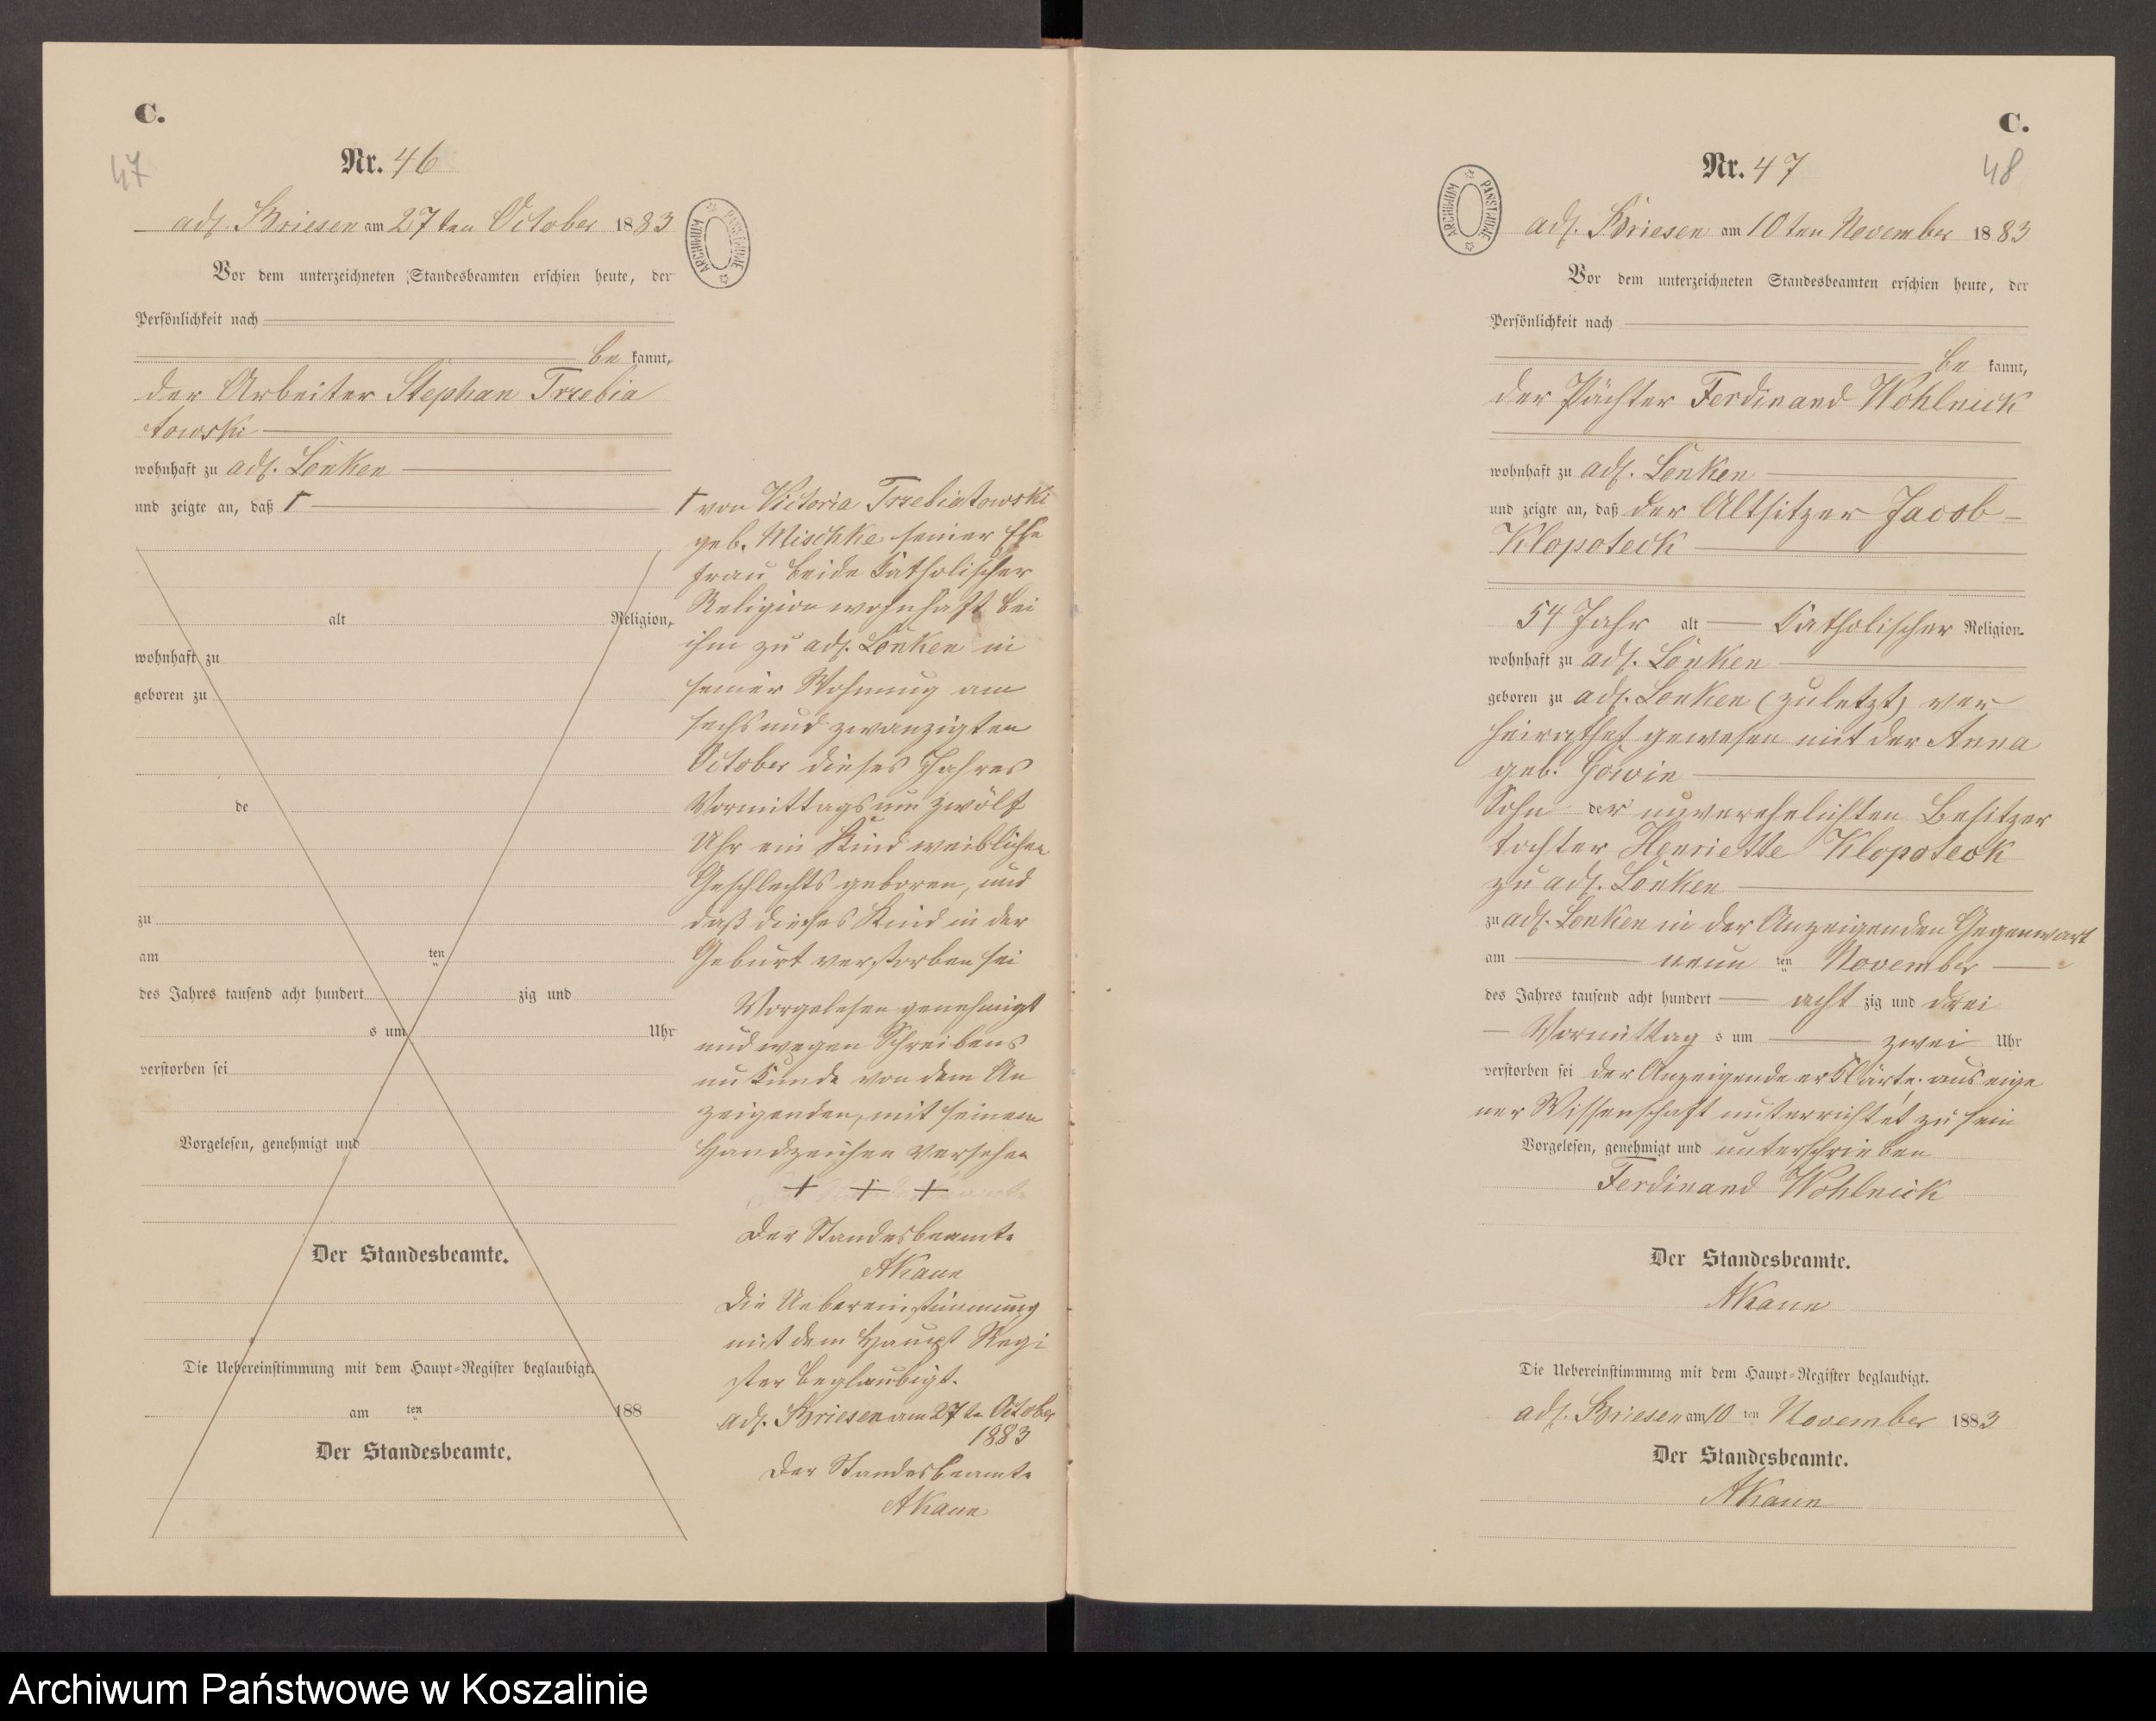 C.
47
Nr. 46
adl. Briesen am 27ten October 1883
ARCHIWUM PAŃSTWOWE
Vor dem unterzeichneten Standesbeamten erschien heute, der
Persönlichkeit nach
be kannt,
der Arbeiter Stephan Trzebia
towski
wohnhaft zu adl. Lonken
und zeigte an, daß Γ
alt Religion,
wohnhaft zu
geboren zu
de
zu
am ten
des Jahres tausend acht hundert zig und
s um Uhr
verstorben sei
Vorgelesen, genehmigt und
Der Standesbeamte.
Die Uebereinstimmung mit dem Haupt-Register beglaubigt.
am ten 188
Der Standesbeamte.
Γ von Victoria Trzebiatowski
geb. Mischke seiner Ehe
frau beide katholischer
Religion wohnhaft bei
ihm zu adl. Lonken in
seiner Wohnung am
sechs und zwanzigten
October dieses Jahres
Vormittags um zwölf
Uhr ein Kind weiblichen
Geschlechts geboren, und
daß dieses Kind in der
Geburt verstorben sei
Vorgelesen genehmigt
und wegen Schreibens
unkunde von dem An
zeigenden, mit seinem
Handzeichen versehen
+ + +
Der Standesbeamte
AKaun
Die Uebereinstimmung
mit dem Haupt Regi
ster beglaubigt.
adl. Briesen am 27te October
1883
Der Standesbeamte
AKaun
C.
48
Nr. 47
ARCHIWUM PAŃSTWOWE
adl. Briesen am 10ten November 1883
Vor dem unterzeichneten Standesbeamten erschien heute, der
Persönlichkeit nach
be kannt,
der Pächter Ferdinand Wohlneick
wohnhaft zu adl. Lonken
und zeigte an, daß der Altsitzer Jacob
Klopoteck
54 Jahr alt katholischer Religion
wohnhaft zu adl. Lonken
geboren zu adl. Lonken (zuletzt) ver
heirathet gewesen mit der Anna
geb. Gowin
Sohn der unverehelichten Besitzer
tochter Henriette Klopoteck
zu adl. Lonken
zu adl. Lonken in der Anzeigenden Gegenwart
am neun ten November
des Jahres tausend acht hundert acht zig und drei
Vormittag s um zwei Uhr
verstorben sei der Anzeigende erklärte, aus eige
ner Wissenschaft unterrichtet zu sein
Vorgelesen, genehmigt und unterschrieben
Ferdinand Wohlneick
Der Standesbeamte.
AKaun
Die Uebereinstimmung mit dem Haupt-Register beglaubigt.
adl. Briesen am 10 ten November 1883
Der Standesbeamte.
AKaun
Archiwum Państwowe w Koszalinie